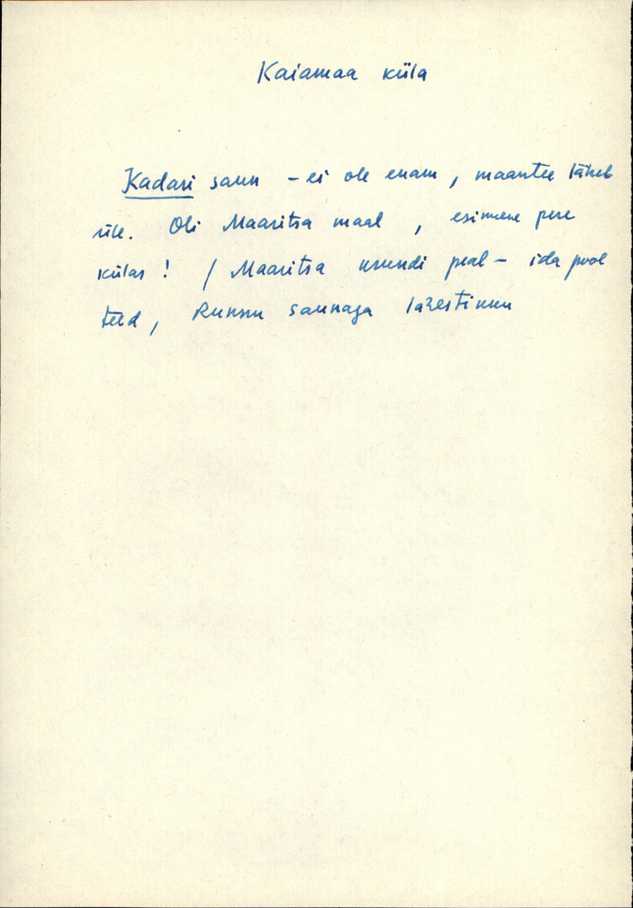 Kaiamaa küla
Kadari saun – ei ole enam, maantee läheb
üle. Oli Maaritsa maal, esimene pere
külas! / Maaritsa krundi peal – ida pool
teed, saunaga